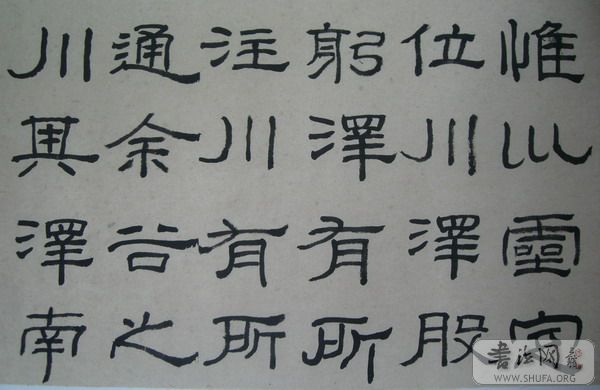 惟巛靈定
位川澤股
躬澤有所
注川有所
通余谷之
川其澤南
書法网
WWW.SHUFA.ORG